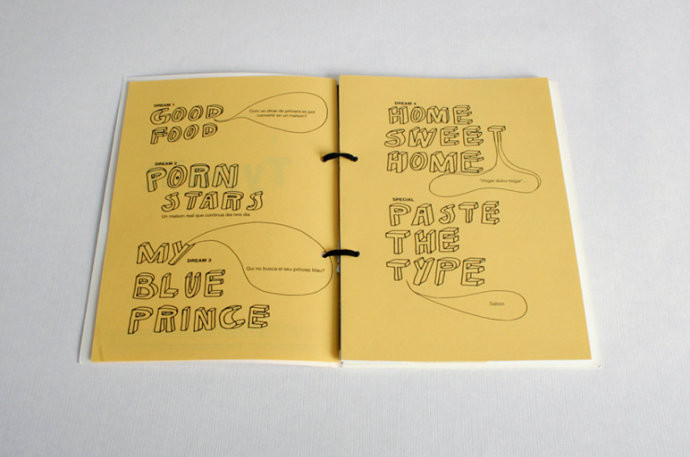 DREAM 1
GOOD
FOOD
Com un dinar de primera es pot
convertir en un malson?
DREAM 2
PORN
STARS
Un malson real que continua dia rera dia
MY
DREAM 3
BLUE
PRINCE
Qui no busca el seu príncep blau?
DREAM 4
HOME
SWEET
HOME
"Hogar dulce hogar"...
SPECIAL
PASTE
THE
TYPE